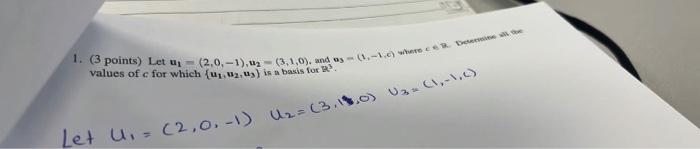 1. (3 points) Let u₁ = (2,0,−1), u₂ = (3,1,0), and u₃ = (1,−1,c) where c ∈ ℝ. Determine all the
values of c for which {u₁, u₂, u₃} is a basis for ℝ³.
Let u₁ = (2,0,-1) u₂ = (3,1,0) u₃ = (1,-1,c)